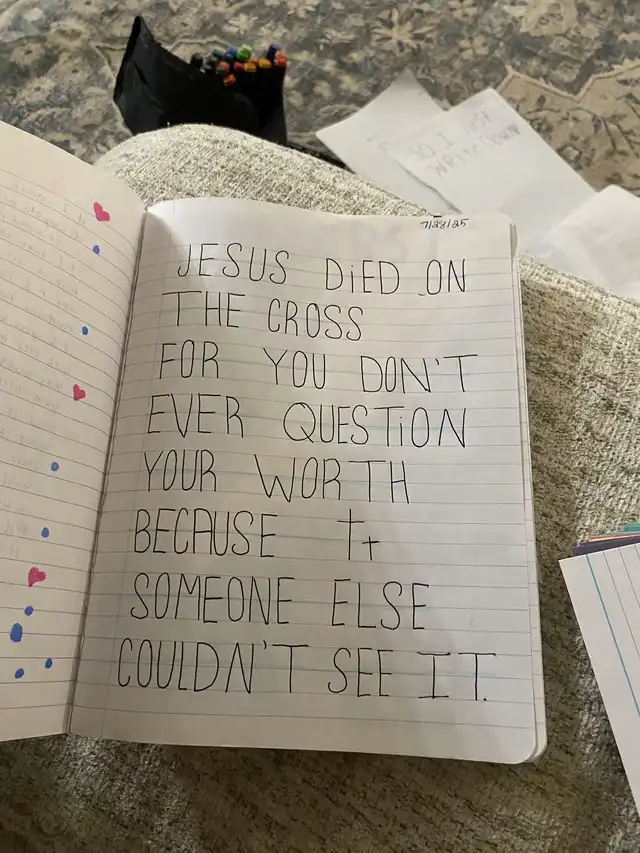 7/28/25
JESUS DiED ON
THE CROSS
FOR YOU DON'T
EVER QUESTiON
YOUR WORTH
BECAUSE
SOMEONE ELSE
COULDN'T SEE IT.